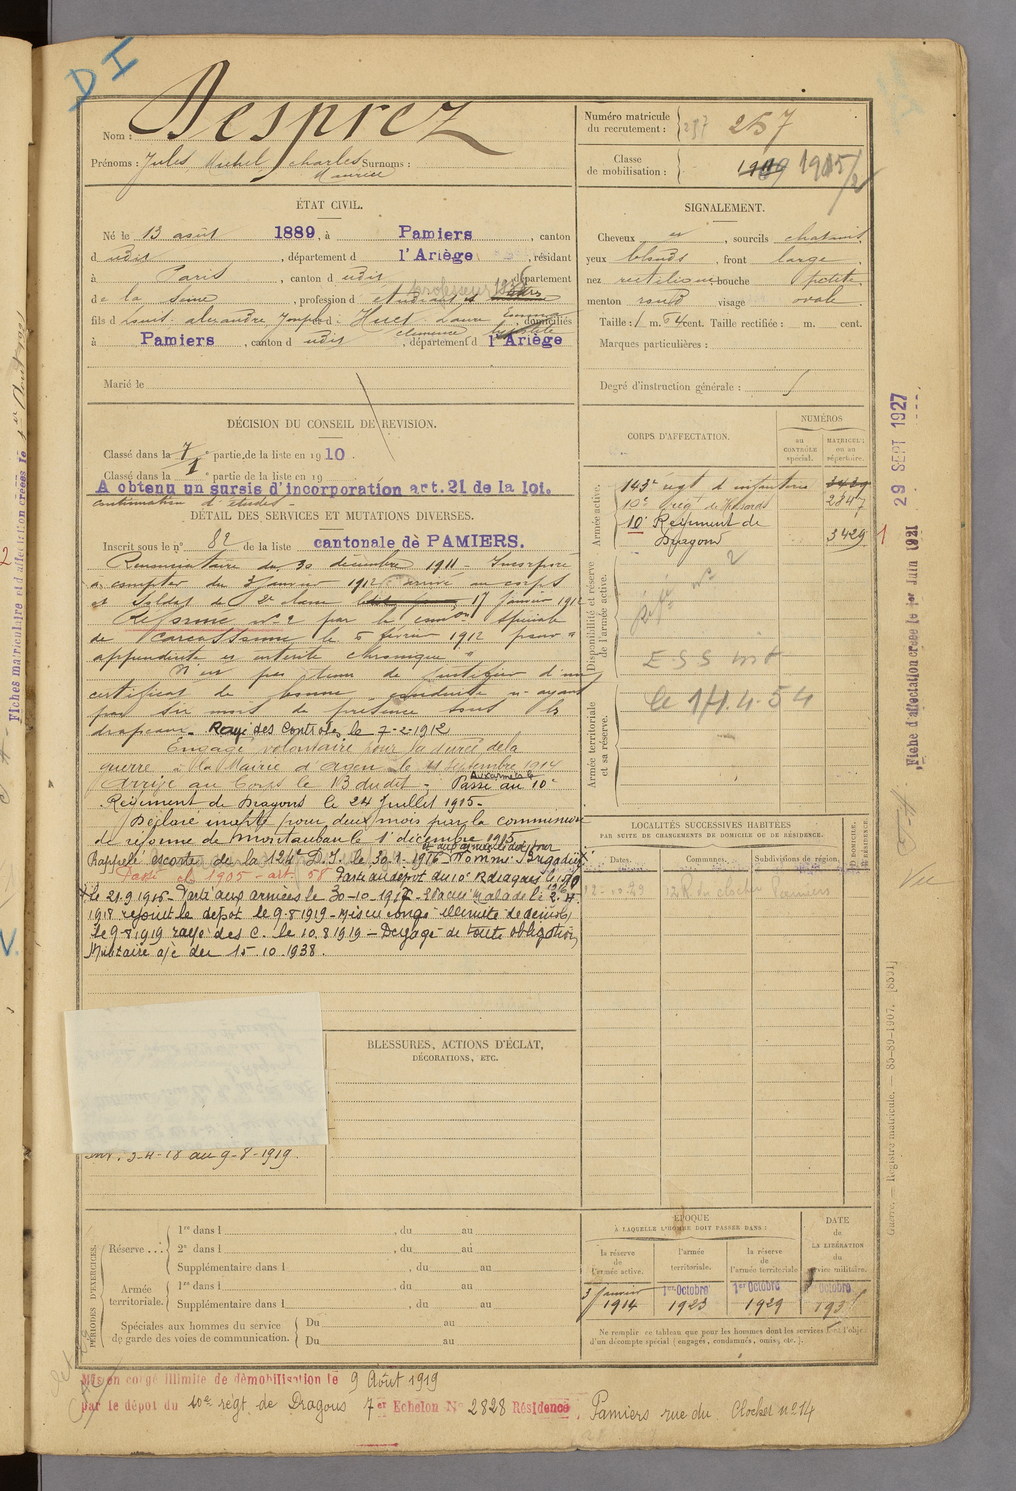 DI
Nom : Desprez
Prénoms : Jules Michel Charles Surnoms :
Maurice
Numéro matricule
du recrutement : 257 267
Classe
de mobilisation : 1909 1905/2
ÉTAT CIVIL.
Né le 13 août 1889, à Pamiers, canton
d udit, département d l'Ariège, résidant
à Paris, canton d udit département
de la Seine, profession d étudiant
fils d Louis, alexandre, Joseph et d : Huet Laure domiciliés
à Pamiers, canton d udit, département d l'Ariège
Marié le
SIGNALEMENT.
Cheveux et, sourcils chatains
yeux blonds, front large
nez rectiligne bouche petite
menton rond visage ovale
Taille : 1 m. 64 cent. Taille rectifiée : m. cent.
Marques particulières :
Degré d'instruction générale :
DÉCISION DU CONSEIL DE REVISION.
Classé dans la 7e partie de la liste en 1910.
Classé dans la 1e partie de la liste en 19
A obtenu un sursis d'incorporation art. 21 de la loi.
continuation d'études
DÉTAIL DES SERVICES ET MUTATIONS DIVERSES.
Inscrit sous le n° 82 de la liste cantonale de PAMIERS.
Renonciataire du 30 décembre 1911 - Incorporé
à compter du 3 janvier 1912 arrivé au corps
et soldat de 2e classe 17 janvier 1912
Réformé n° 2 par la comon spéciale
de Carcassonne le 6 février 1912 pour "
appendicite et entérite chronique "
N'est pas tenu de justifier d'un
certificat de bonne conduite n'ayant
pas six mois de présence sous les
drapeaux. Rayé des controles le 7-2-1912
Engagé volontaire pour la durée de la
guerre à la Mairie d'Agen le 11 septembre 1914
Arrivé au Corps le 13 dudit - Passé au 10e
Aux armées le
Régiment de Dragons le 24 Juillet 1915-
Déclaré inapte pour deux mois par la commission
de réforme de Montauban le 1er décembre 1915
Rappelé escorte de la 124e D.I. le 30.1.1916 Nommé Brigadier
Passé cl. 1905 - art. 58 Parti au dépot du 10e R. dragons le
le 21.9.1915 - Parti aux armées le 30-10-1917 - Evacué malade le 2.4.
1918 rejoint le dépot le 9-8-1919 - Mis en congé illimité de démob)
le 9-8-1919 rayé des C. le 10.8.1919 - Dégagé de toute obligation
Militaire a/c du 15.10.1938.
CORPS D'AFFECTATION.
NUMÉROS
au CONTRÔLE spécial.
MATRICULE ou au répertoire.
Armée active.
143e régt d'infanterie 3439
10e régt de Hussards 2847
10e Régiment de
Dragons 3429
Disponibilité et réserve de l'armée active.
Réf n° 2
E S S
le 14.4.54
Armée territoriale et sa réserve.
LOCALITÉS SUCCESSIVES HABITÉES
PAR SUITE DE CHANGEMENTS DE DOMICILE OU DE RÉSIDENCE.
Dates. Communes. Subdivisions de région. D DOMICILE. R RÉSIDENCE.
12-10-29 14 R. du clocher Pamiers
BLESSURES, ACTIONS D'ÉCLAT,
DÉCORATIONS, ETC.
Int. 3-4-18 au 9-8-1919.
PÉRIODES D'EXERCICES.
Réserve
1re dans l , du au
2e dans l , du au
Supplémentaire dans l , du au
Armée territoriale.
1re dans l , du au
Supplémentaire dans l , du au
Spéciales aux hommes du service
de garde des voies de communication.
Du au
Du au
ÉPOQUE
À LAQUELLE L'HOMME DOIT PASSER DANS :
la réserve de l'armée active. l'armée territoriale. la réserve de l'armée territoriale
DATE de LA LIBÉRATION du service militaire.
3 janvier 1914 1er Octobre 1923 1er Octobre 1929 1er Octobre 193
Ne remplir ce tableau que pour les hommes dont les services font l'objet
d'un décompte spécial (engagés, condamnés, omis, etc.).
Mis en congé illimité de démobilisation le 9 Août 1919
par le dépot du 10e régt. de Dragons 7er Echelon N° 2828 Résidence, Pamiers rue du Clocher n° 14
29 SEPT 1927
Fiche d'affectation créée le 1er Juin 1921
Vu
Guerre. — Registre matricule. — 85-89-1907. [8591]